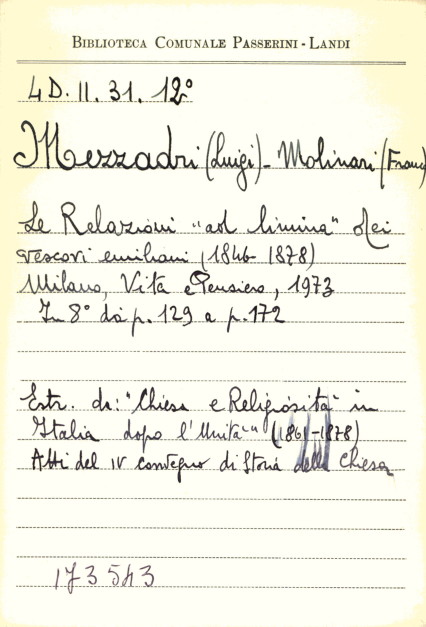 BIBLIOTECA COMUNALE PASSERINI - LANDI
4 D. II. 31. 12°
Mezzadri (Luigi) - Molinari (Franc
Le Relazioni "ad limina" dei
vescovi emiliani (1846 1878)
Milano, Vita e Pensiero, 1973
In 8° da p. 129 a p. 172
Estr. da: "Chiesa e Religiosità in
Italia dopo l'Unità" (1861-1878)
Atti del IV convegno di Storia della Chiesa
173543